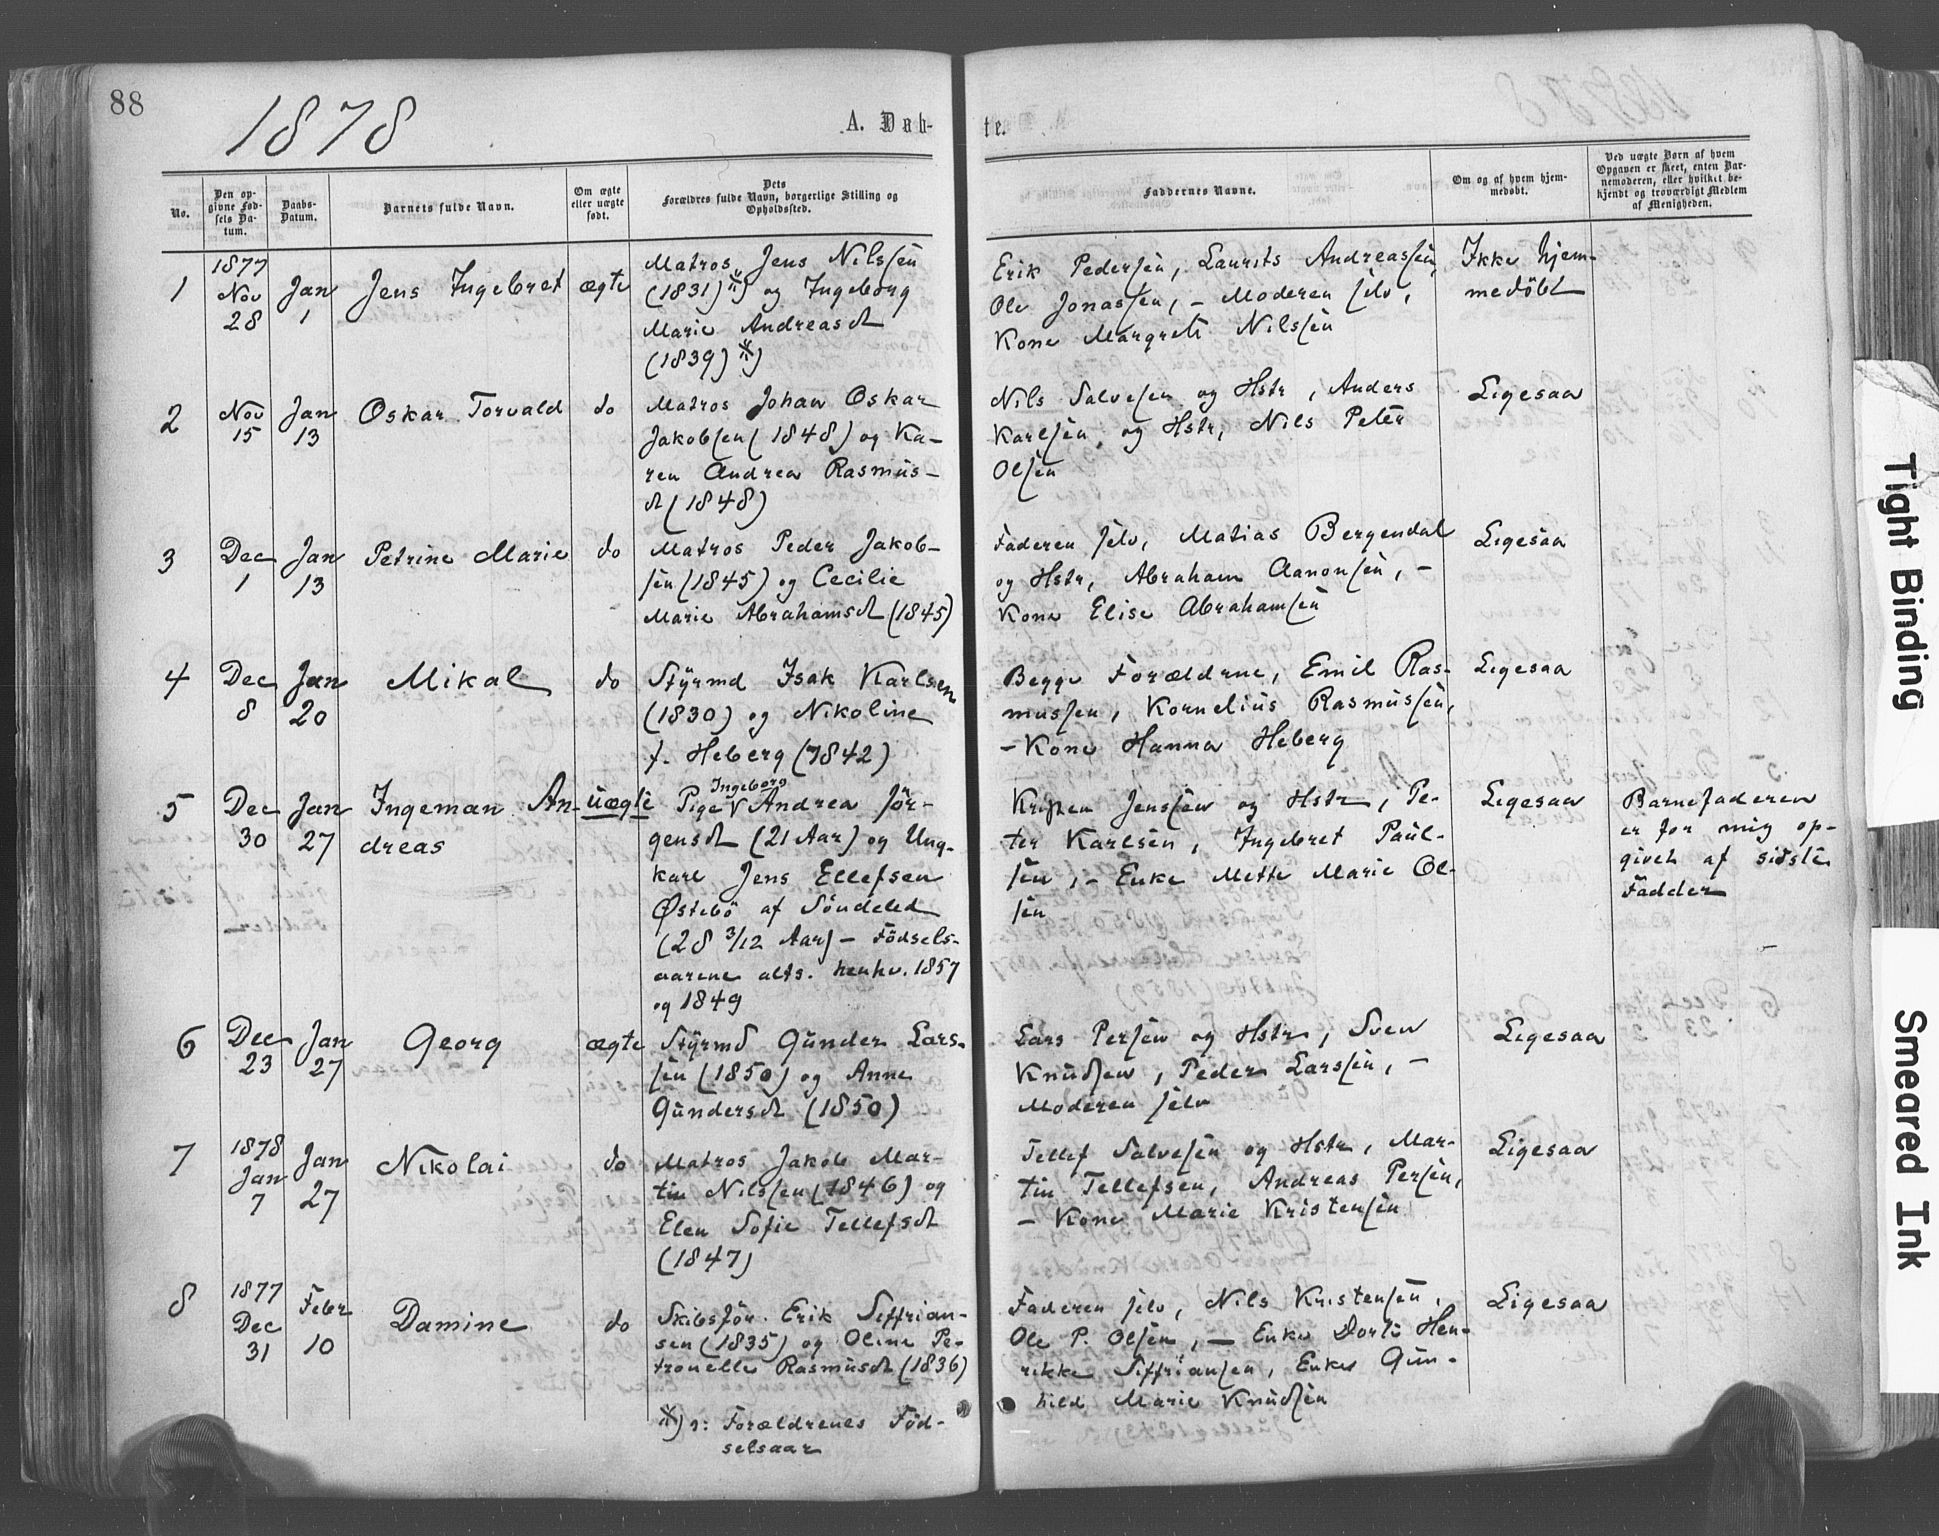 88
1878
A. Døb-
te.
No.
Den op-
givne Fød-
sels Da-
tum.
Daabs-
Datum.
Barnets fulde Navn.
Om ægte
eller uægte
født.
Dets
Forældres fulde Navn, borgerlige Stilling og
Opholdssted.
Faddernes Navne.
Om og af hvem hjem-
medøbt.
Ved uægte Børn af hvem
Opgaven er skeet, enten Bar-
nemoderen, eller hvilket be-
kjendt og troværdigt Medlem
af Menigheden.
1
1877
Nov
28
Jan
1
Jens Ingebret
ægte
Matros Jens Nilssen
(1831)*) og Ingeborg
Marie Andreasdt
(1839)*)
Erik Pedersen, Laurits Andreassen,
Ole Jonassen, – Moderen selv,
Kone Margrete Nilssen
Ikke hjem-
medøbt
2
Nov
15
Jan
13
Oskar Torvald
do
Matros Johan Oskar
Jakobsen (1848) og Ka-
ren Andrea Rasmus-
dt (1848)
Nils Salvesen og Hstr, Anders
Karlsen og Hstr, Nils Peter
Olsen
Ligesaa
3
Dec
1
Jan
13
Petrine Marie
do
Matros Peder Jakob-
sen (1845) og Cecilie
Marie Abrahamsdt (1845)
Faderen selv, Matias Bergendal
og Hstr, Abraham Aanonsen, –
Kone Elise Abrahamsen
Ligesaa
4
Dec
8
Jan
20
Mikal
do
Styrmd Isak Karlsen
(1830) og Nikoline
f. Heberg (1842)
Begge Forældrne, Emil Ras-
mussen, Kornelius Rasmussen,
– Kone Hanna Heberg
Ligesaa
5
Dec
30
Jan
27
Ingeman An-
dreas
uægte
Ingeborg
Pige V Andrea Jör-
gensdt (21 Aar) og Ung-
karl Jens Ellefsen
Østebö af Söndeled
(28 3/12 Aar) – Födsels-
aarene alts. henhv. 1857
og 1849
Kristen Jenssen og Hstr, Pe-
ter Karlsen, Ingebret Paul-
sen, – Enke Mette Marie Ol-
sen
Ligesaa
Barnefaderen
er for mig op-
givet af sidste
Fadder
6
Dec
23
Jan
27
Georg
ægte
Styrmd Gunder Lars-
sen (1850) og Anne
Gundersdt (1850)
Lars Persen og Hstr, Sven
Knudsen, Peder Larssen, –
Moderen selv
Ligesaa
7
1878
Jan
7
Jan
27
Nikolai
do
Matros Jakob Mar-
tin Nilssen (1846) og
Elen Sofie Tellefsdt
(1847)
Tellef Salvesen og Hstr, Mar-
tin Tellefsen, Andreas Persen,
– Kone Marie Kristensen
Ligesaa
8
1877
Dec
31
Febr
10
Damine
do
Skibsför. Erik Siffrian-
sen (1835) og Oline Pe-
tronelle Rasmusdt (1836)
Faderen selv, Nils Kristensen,
Ole P. Olsen, – Enke Dorte Hen-
rikke Siffriansen, Enke Gun-
hild Marie Knudsen
Ligesaa
*) ɔ: Forældrenes Föd-
selsaar
Tight Binding
Smeared Ink